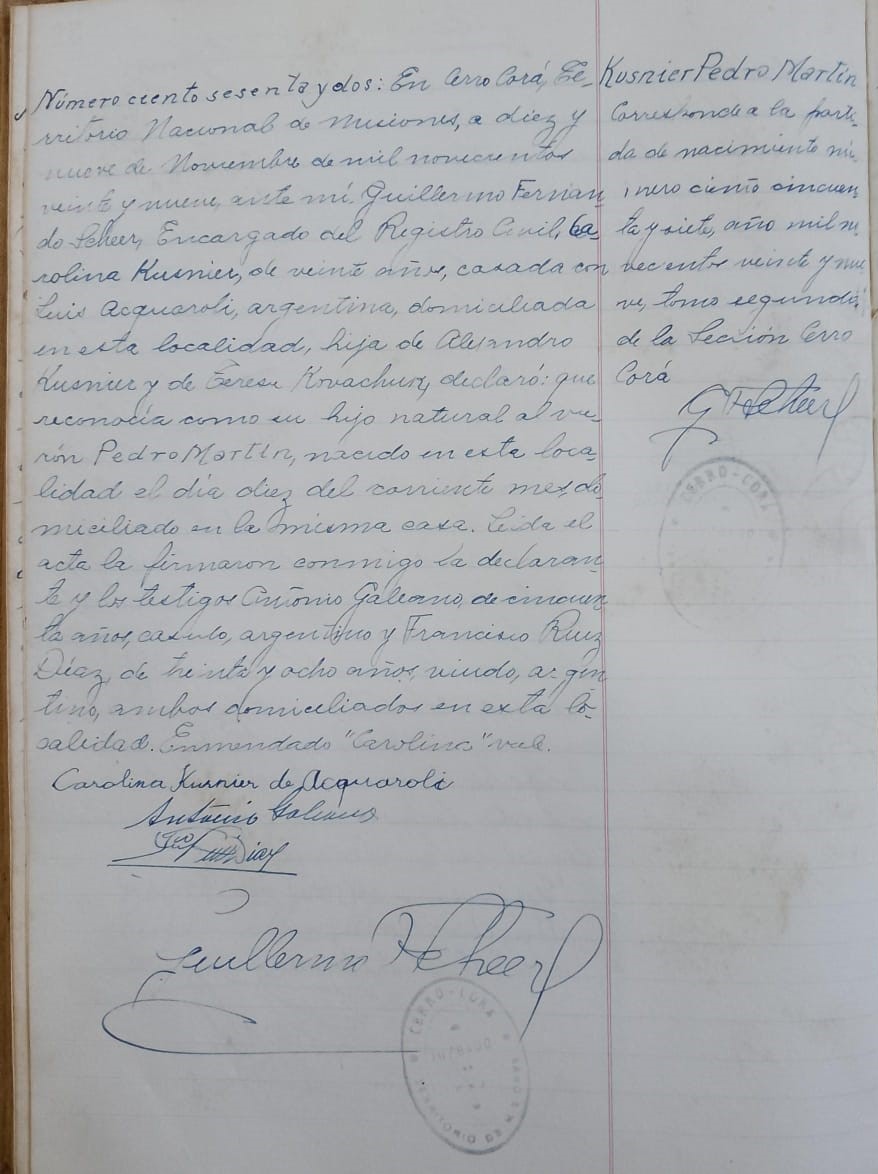 Número ciento sesenta y dos: En Cerro Corá, Te-
rritorio Nacional de Misiones, a diez y
nueve de Noviembre de mil novecientos
veinte y nueve, ante mí Guillermo Fernan
do Scheer, Encargado del Registro Civil, Ca-
rolina Kusnier, de veinte años, casada con
Luis Acquaroli, argentina, domiciliada
en esta localidad, hija de Alejandro
Kusnier y de Teresa Kovachuk, declaró: que
reconocía como su hijo natural al va-
rón Pedro Martín, nacido en esta loca-
lidad el día diez del corriente mes, do-
miciliado en la misma casa. Leída el
acta la firmaron conmigo la declaran-
te y los testigos Antonio Galeano, de cincuen
ta años, casado, argentino y Francisco Ruiz
Díaz, de treinta y ocho años, viudo, argen
tino, ambos domiciliados en esta lo-
calidad. Enmendado "Carolina" vale.
Carolina Kusnier de Acquaroli
Antonio Galeano
Fco Ruiz Diaz
Guillermo F Scheer
CERRO-CORA
TERRITORIO DE
Kusnier Pedro Martín
Corresponde a la parti-
da de nacimiento nú-
mero ciento cincuen
ta y siete, año mil no
vecientos veinte y nue
ve, tomo segundo
de la Sección Cerro
Corá
G F Scheer
CERRO-CORA